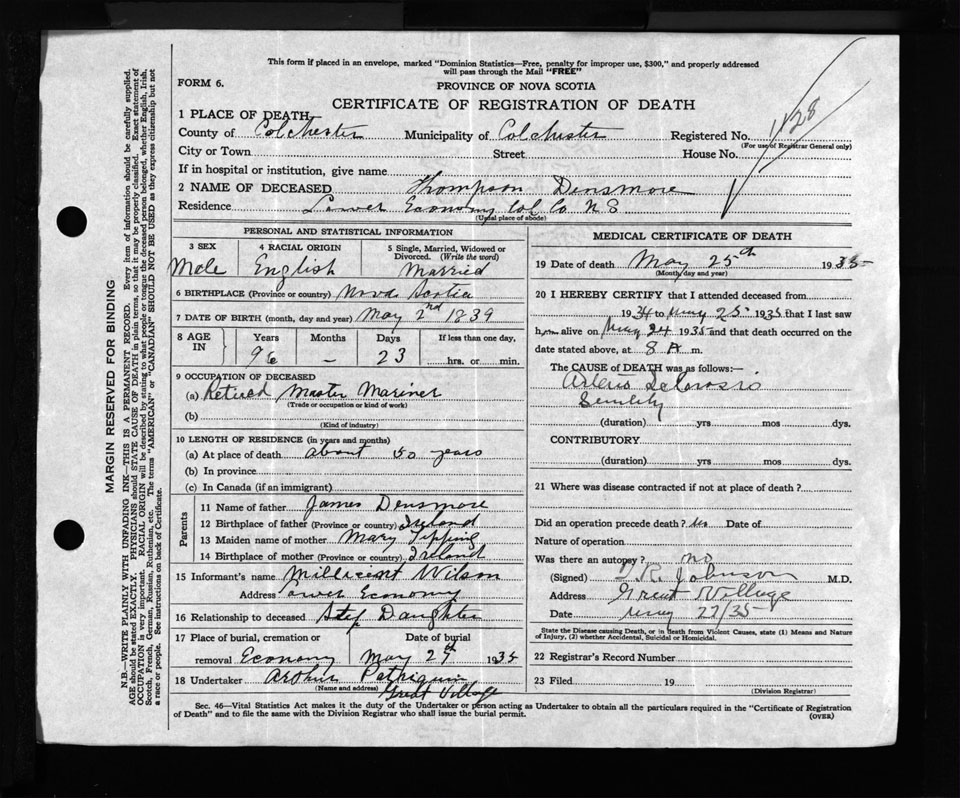 This form if placed in an envelope, marked "Dominion Statistics—Free, penalty for improper use, $300," and properly addressed
will pass through the Mail "FREE"
FORM 6.
PROVINCE OF NOVA SCOTIA
CERTIFICATE OF REGISTRATION OF DEATH
1 PLACE OF DEATH
County of Colchester Municipality of Colchester Registered No.
(For use of Registrar General only)
City or Town Street House No.
If in hospital or institution, give name
2 NAME OF DECEASED Thompson Densmore
Residence Lower Economy Col Co N S
(Usual place of abode)
PERSONAL AND STATISTICAL INFORMATION
3 SEX 4 RACIAL ORIGIN 5 Single, Married, Widowed or Divorced. (Write the word)
Male English Married
6 BIRTHPLACE (Province or country) Nova Scotia
7 DATE OF BIRTH (month, day and year) May 2nd 1839
8 AGE IN Years Months Days If less than one day,
96 – 23 hrs. or min.
9 OCCUPATION OF DECEASED
(a) Retired Master Mariner
(Trade or occupation or kind of work)
(b)
(Kind of industry)
10 LENGTH OF RESIDENCE (in years and months)
(a) At place of death about 50 years
(b) In province
(c) In Canada (if an immigrant)
Parents
11 Name of father James Densmore
12 Birthplace of father (Province or country) Ireland
13 Maiden name of mother Mary Tipping
14 Birthplace of mother (Province or country) Ireland
15 Informant's name Millicent Wilson
Address Lower Economy
16 Relationship to deceased Step Daughter
17 Place of burial, cremation or Date of burial
removal Economy May 27th 1935
18 Undertaker Arthur
(Name and address) Great Village
MEDICAL CERTIFICATE OF DEATH
19 Date of death May 25th 1935
(Month, day and year)
20 I HEREBY CERTIFY that I attended deceased from
1934 to May 25 1935 that I last saw
him alive on May 24 1935 and that death occurred on
date stated above, at 8 A m.
The CAUSE of DEATH was as follows:—
Senility
(duration) yrs mos dys.
CONTRIBUTORY
(duration) yrs. mos dys.
21 Where was disease contracted if not at place of death?
Did an operation precede death? Date of
Nature of operation
Was there an autopsy? no
(Signed) R. Johnson M.D.
Address Great Village
Date May 27/35
State the Disease causing Death, or in death from Violent Causes, state (1) Means and Nature
of Injury, (2) whether Accidental, Suicidal or Homicidal.
22 Registrar's Record Number
23 Filed 19
(Division Registrar)
Sec. 46—Vital Statistics Act makes it the duty of the Undertaker or person acting as Undertaker to obtain all the particulars required in the "Certificate of Registration
of Death" and to file the same with the Division Registrar who shall issue the burial permit.
(OVER)
MARGIN RESERVED FOR BINDING
N.B.—WRITE PLAINLY WITH UNFADING INK—THIS IS A PERMANENT RECORD. Every item of information should be carefully supplied.
AGE should be stated EXACTLY. PHYSICIANS should STATE CAUSE OF DEATH in plain terms, so that it may be properly classified. Exact statement of
OCCUPATION is very important. RACIAL ORIGIN will be described by stating to what people or tongue the deceased person belonged, whether English, Irish,
Scotch, French, German, Russian, Ruthenian, etc. The terms "AMERICAN" or "CANADIAN" SHOULD NOT BE USED as they express citizenship but not
a race or people. See instructions on back of Certificate.